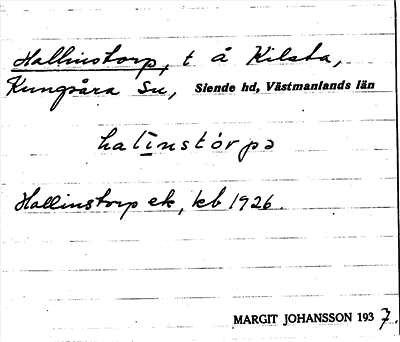 Hallinstorp, t å Kilsta,
Kungsåra sn, Siende hd, Västmanlands län
halinstórpə
Hallinstorp ek, kb 1926.
MARGIT JOHANSSON 1937.